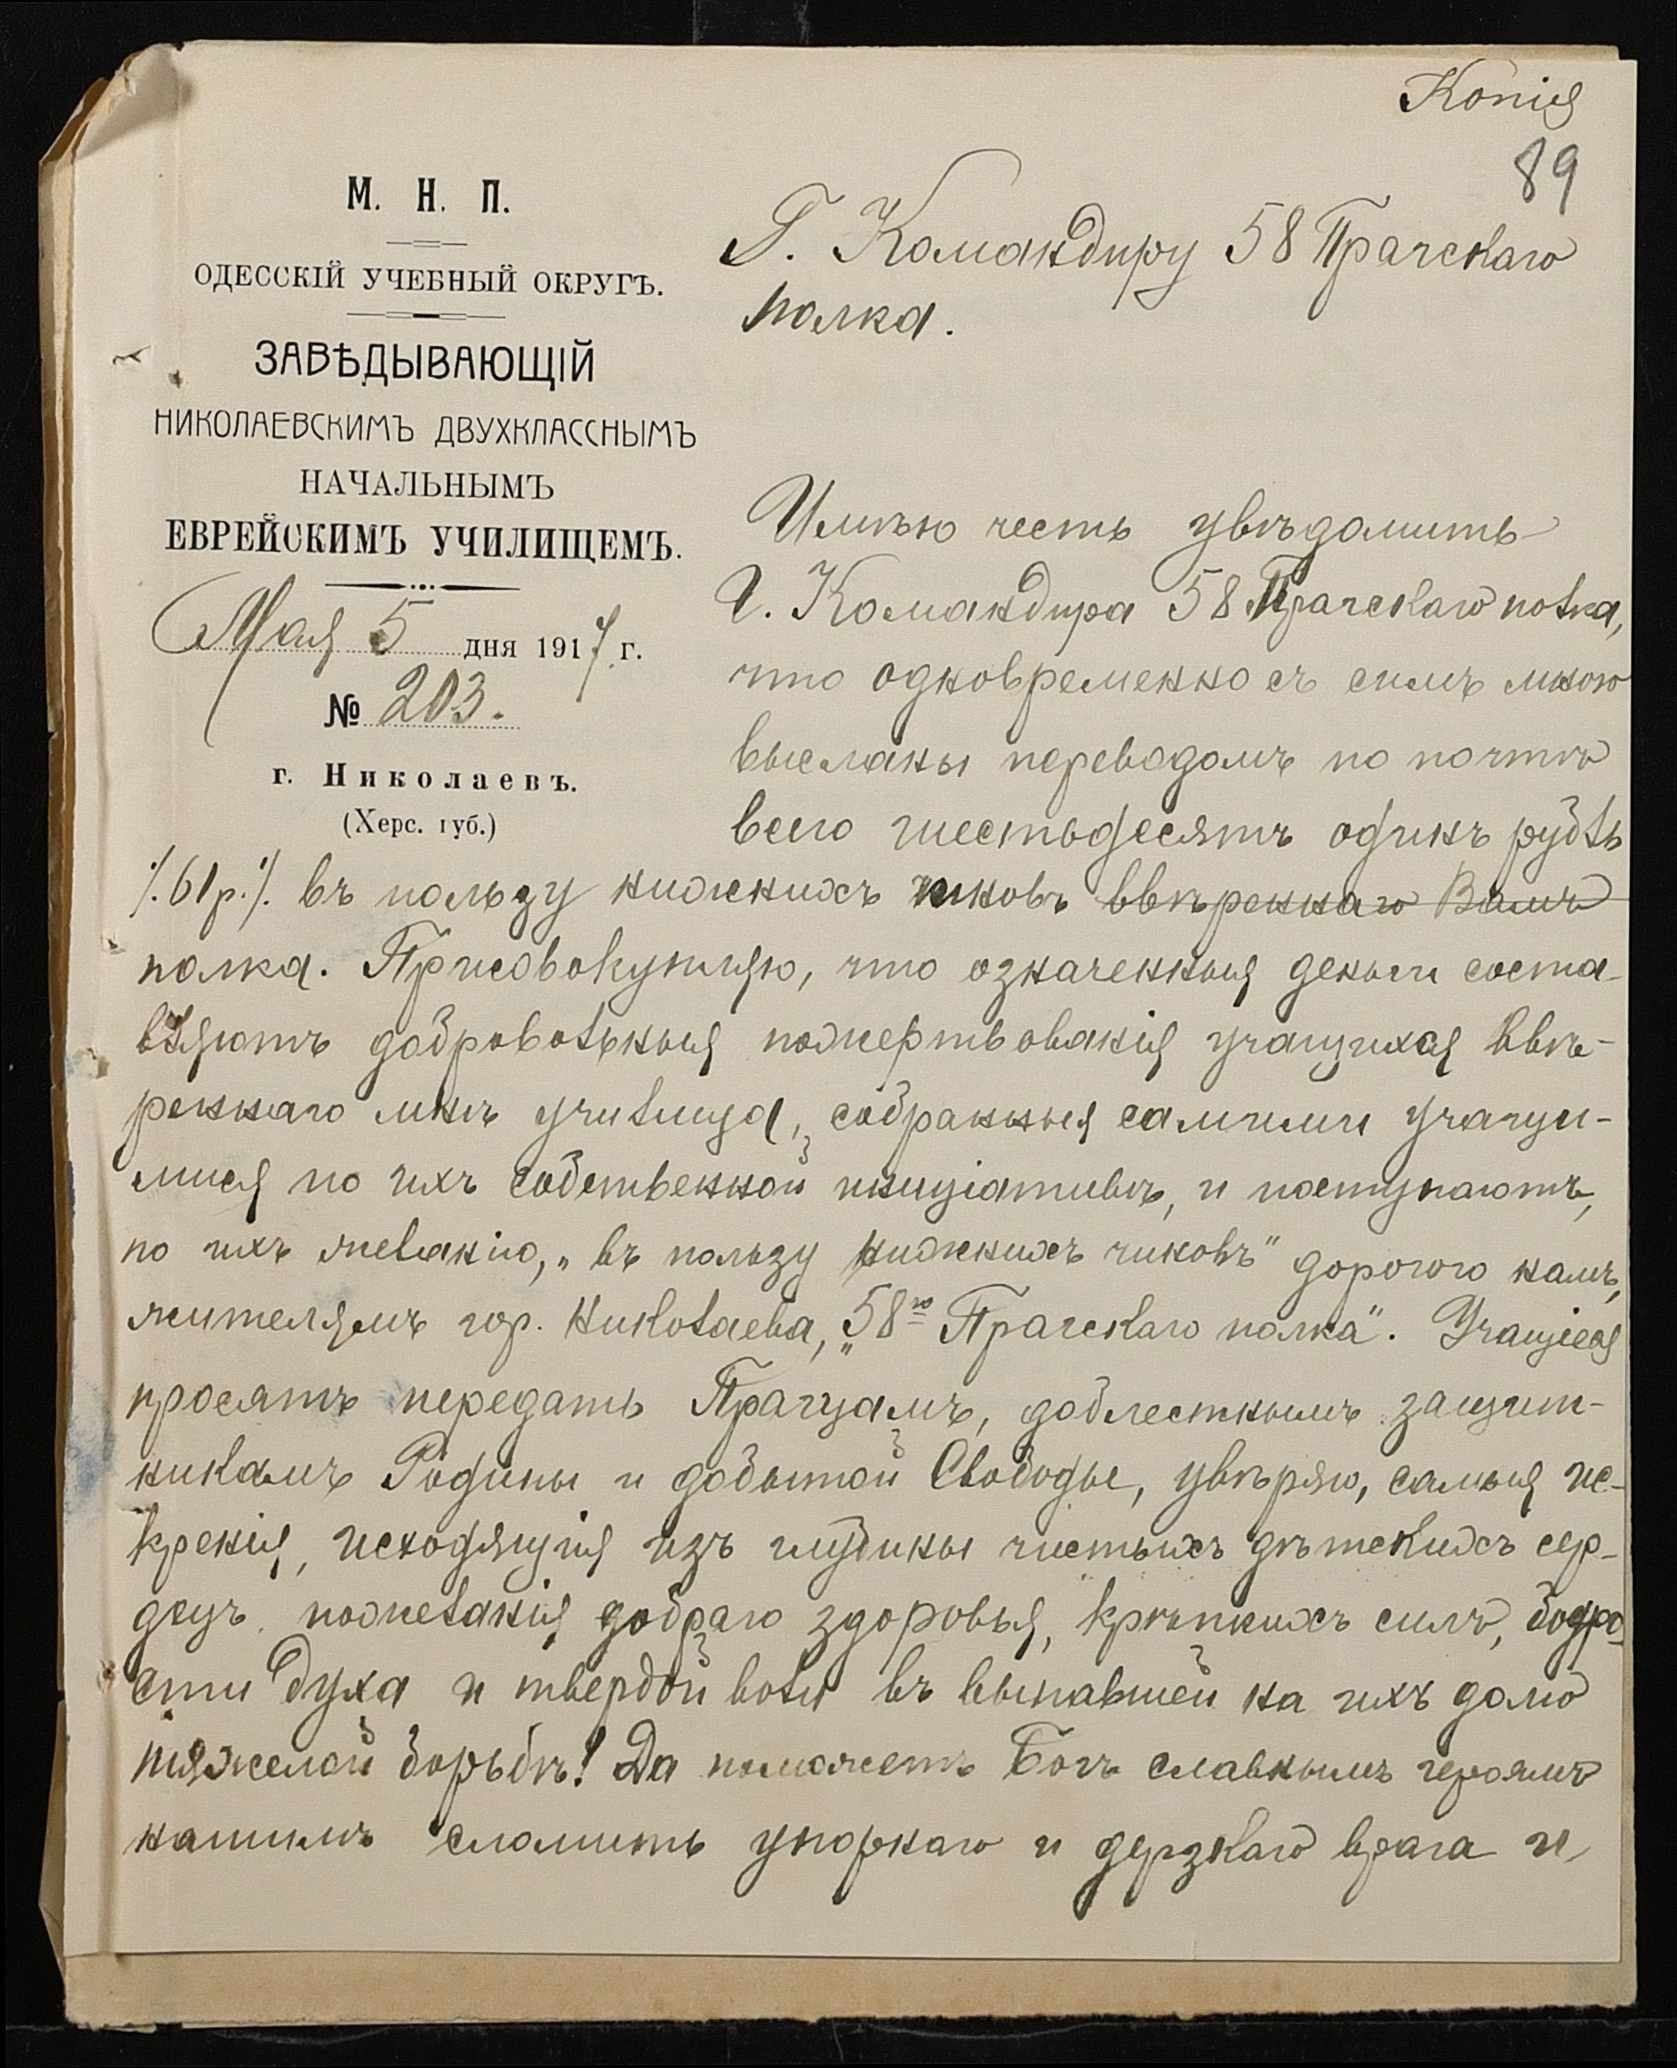 Копія
89
М. Н. П.
ОДЕССКІЙ УЧЕБНЫЙ ОКРУГЪ.
ЗАВѢДЫВАЮЩІЙ
НИКОЛАЕВСКИМЪ ДВУХКЛАССНЫМЪ
НАЧАЛЬНЫМЪ
ЕВРЕЙСКИМЪ УЧИЛИЩЕМЪ.
Мая 5 дня 1917 г.
№ 203.
г. Николаевъ.
(Херс. губ.)
Г. Командиру 58 Прагскаго
полка.
Имѣю честь увѣдомить
Г. Командира 58 Прагскаго полка,
что одновременно съ симъ мною
высланы переводомъ по почтѣ
всего шестьдесятъ одинъ рубль
/.61р./. въ пользу нижнихъ чиновъ ввѣреннаго Вамъ
полка. Присовокупляю, что означенныя деньги соста-
вляютъ добровольныя пожертвованія учащихся ввѣ-
реннаго мнѣ училища, собранныя самими учащи-
мися по ихъ собственной иниціативѣ, и поступаютъ,
по ихъ желанію, „въ пользу нижнихъ чиновъ" дорогого намъ,
жителямъ гор. Николаева, „58го Прагскаго полка". Учащіеся
просятъ передать Пражцамъ, доблестнымъ защит-
никамъ Родины и добытой Свободы, увѣряю, самыя ис-
кренія, исходящія изъ глубины чистыхъ дѣтскихъ сер-
децъ пожеланія добраго здоровья, крѣпкихъ силъ, бодро-
сти духа и твердой воли въ выпавшей на ихъ долю
тяжелой борьбѣ! Да поможетъ Богъ славнымъ героямъ
нашимъ сломить упорнаго и дерзкаго врага и,